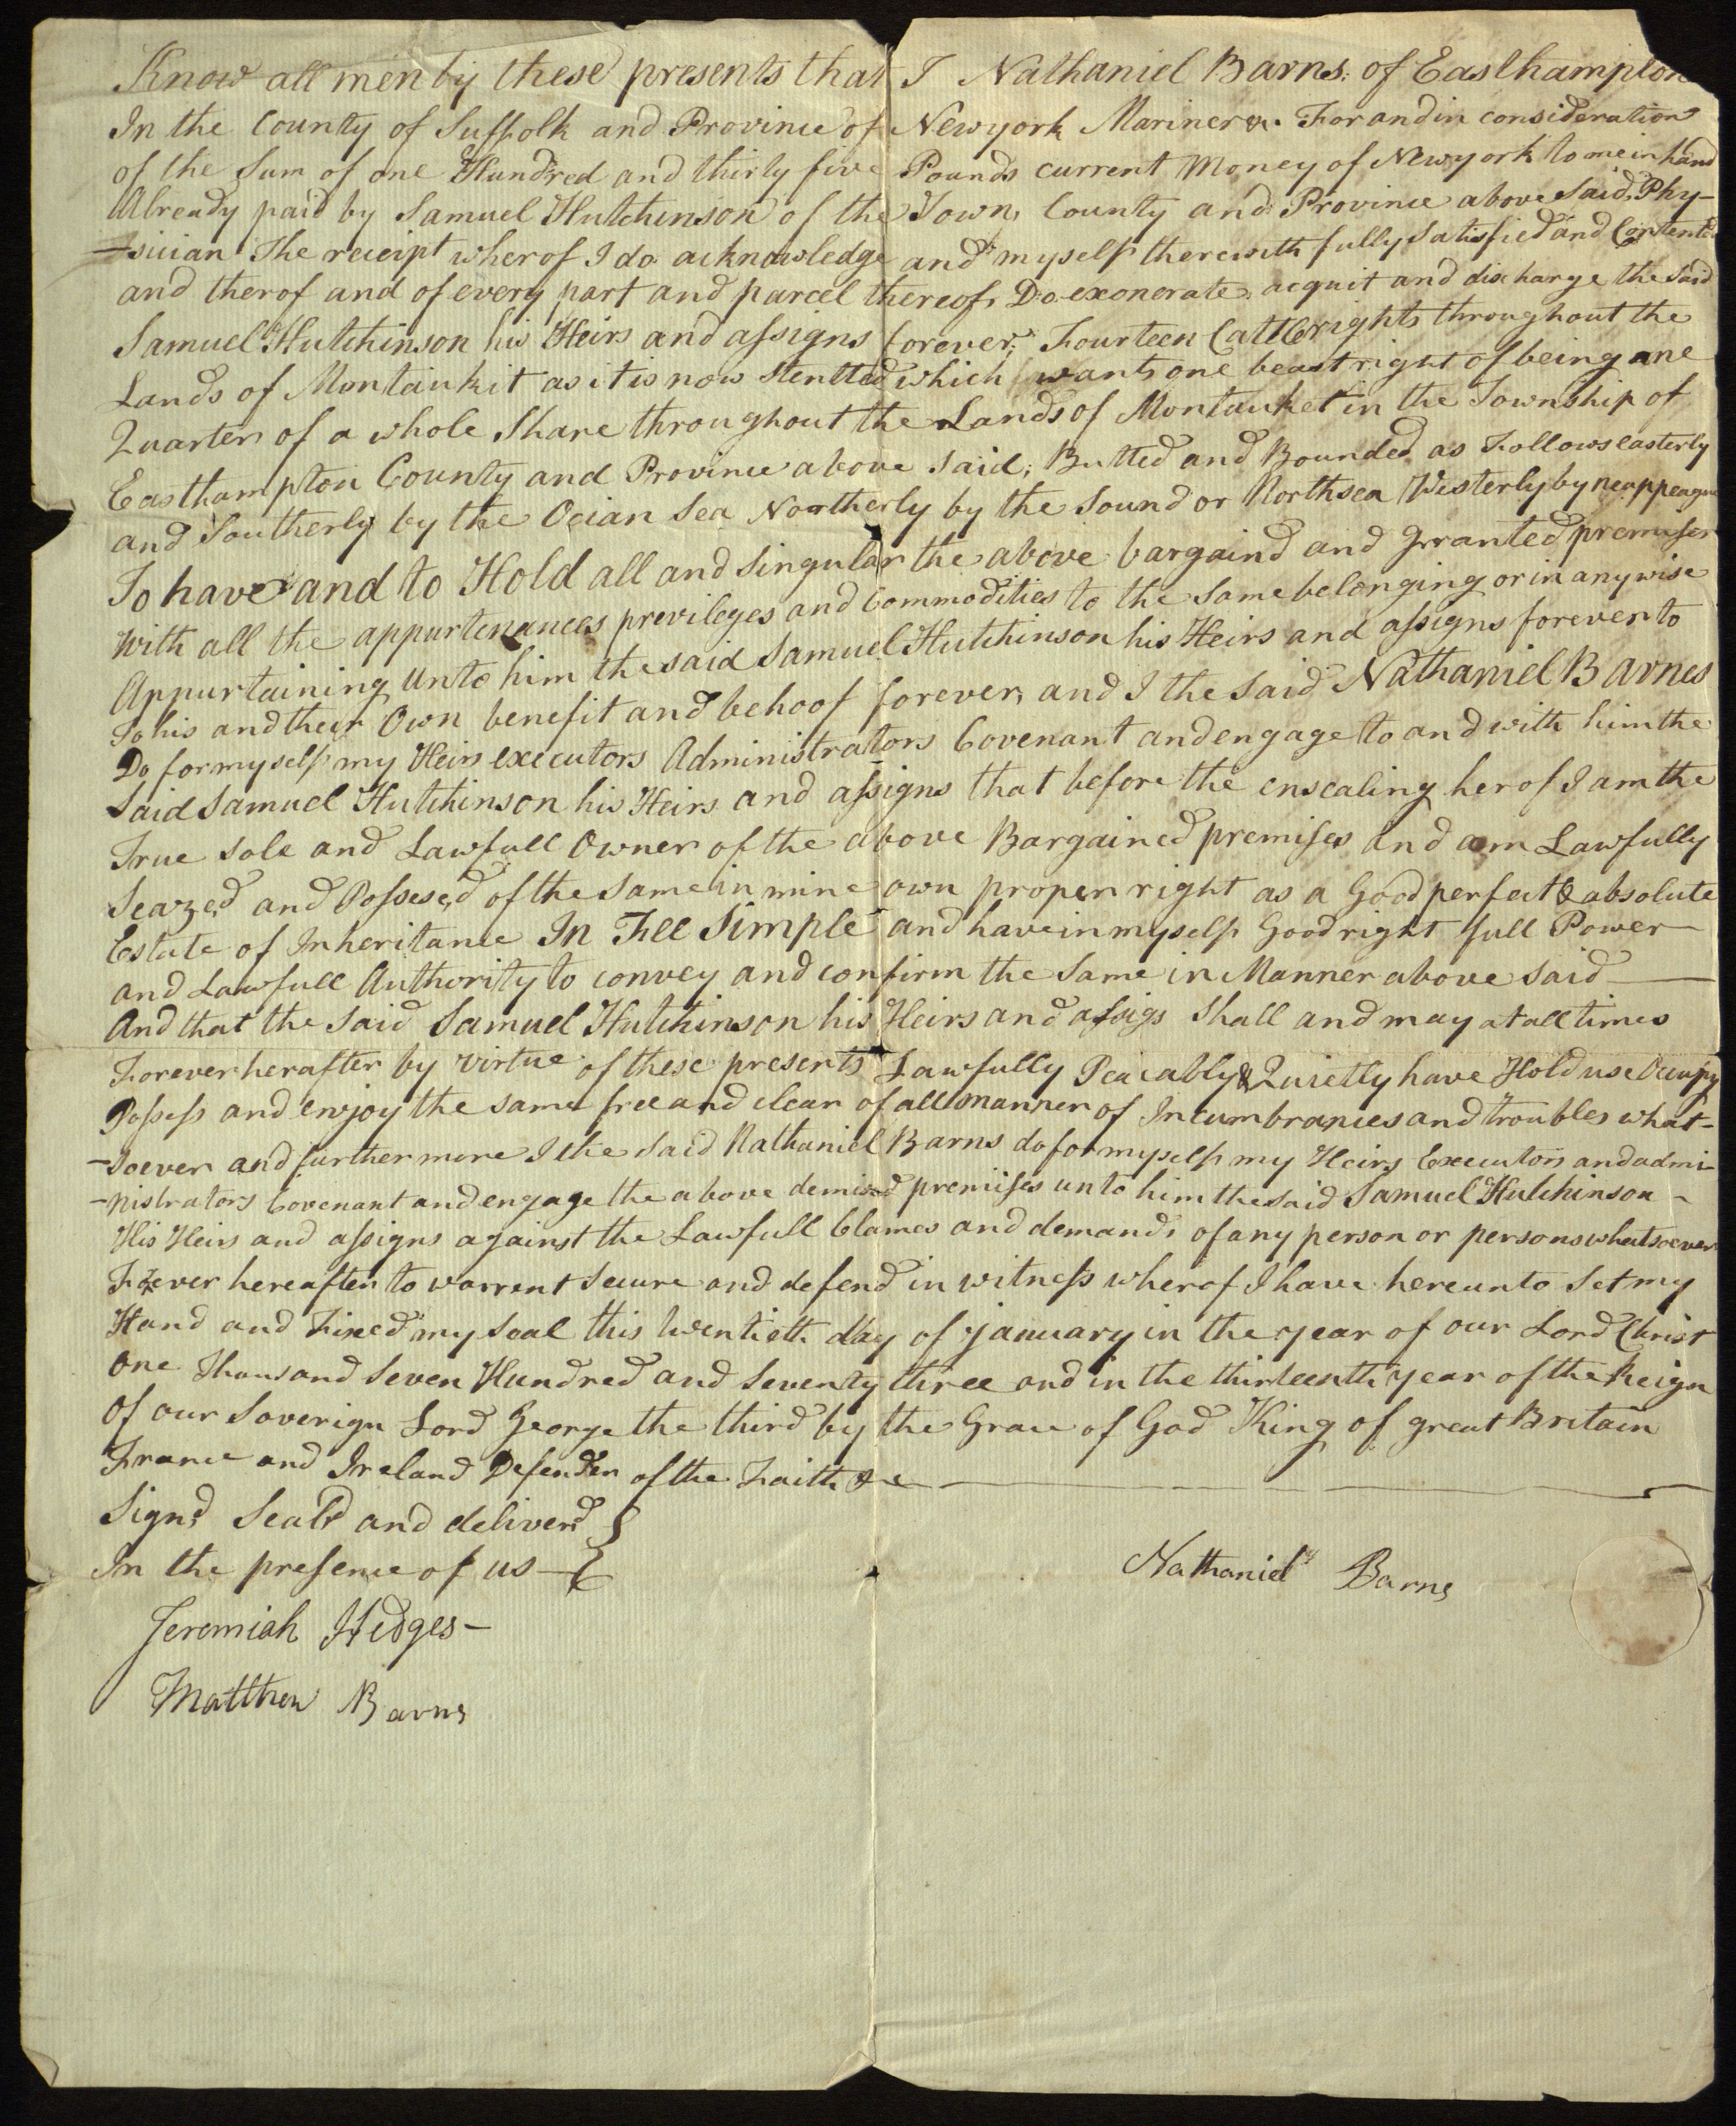 Know all men by these presents that I Nathaniel Barns: of Easthampton
In the County of Suffolk and Province of Newyork Mariner &c. For and in consideration
of the Sum of one Hundred and thirty five Pounds current Money of Newyork to me in hand
Already paid by Samuel Hutchinson of the Town, County and Province above said, Phy-
-sician The receipt wherof I do acknowledge and myself therewith fully Satisfied and Contented
and therof and of every part and parcel thereof, Do exonerate acquit and discharge the said
Samuel Hutchinson his Heirs and assigns forever; Fourteen Cattle rights throughout the
Lands of Montaukit as it is now Stented which wants one beast right of being one
Quarter of a whole Share throughout the Lands of Montauket in the Township of
Easthampton County and Province above said; Butted and Bounded as Follows easterly
and Southerly by the Ocian Sea Northerly by the Sound or Northsea Westerly by neappeague
To have and to Hold all and Singular the above bargaind and Granted premises
With all the appurtenances previleges and Commodities to the Same belonging or in any wise
Appurtaining Unto him the said Samuel Hutchinson his Heirs and assigns forever to
To his and their Own benefit and behoof forever, and I the Said Nathaniel Barnes
Do for myself my Heirs executors Administrators Covenant and engage to and with him the
Said Samuel Hutchinson his Heirs and assigns that before the ensealing herof I am the
True Sole and Lawfull Owner of the above Bargained premises And am Lawfully
Seazed and Possesed of the Same in mine own proper right as a Good perfect & absolute
Estate of Inheritance In Fee Simple and have in myself Good right full Power
and Lawfull Authority to convey and confirm the Same in Manner above said
And that the Said Samuel Hutchinson his Heirs and assigs Shall and may at all times
Forever herafter by virtue of these presents Lawfully Peacably & Quietly have Hold use Occupy
Possess and enjoy the same free and clear of all manner of Incumbrances and troubles what-
-soever and further more I the Said Nathaniel Barns do for myself my Heirs Executors and admi-
-nistrators Covenant and engage the above demised premises unto him the Said Samuel Hutchinson -
His Heirs and assigns against the Lawfull Clames and demands of any person or persons whatsoever
Forever hereafter to warrent Secure and defend in witness wherof I have hereunto Set my
Hand and Fixed my Seal this twentieth day of january in the year of our Lord Christ
One Thousand Seven Hundred and Seventy three and in the thirteenth year of the Reign
Of our Soverign Lord George the third by the Grace of God King of great Britain
France and Ireland Defender of the Faith &c
Signd Seald and deliverd
In the presence of us
Nathaniel Barns
Jeremiah Hedges -
Matthew Barns